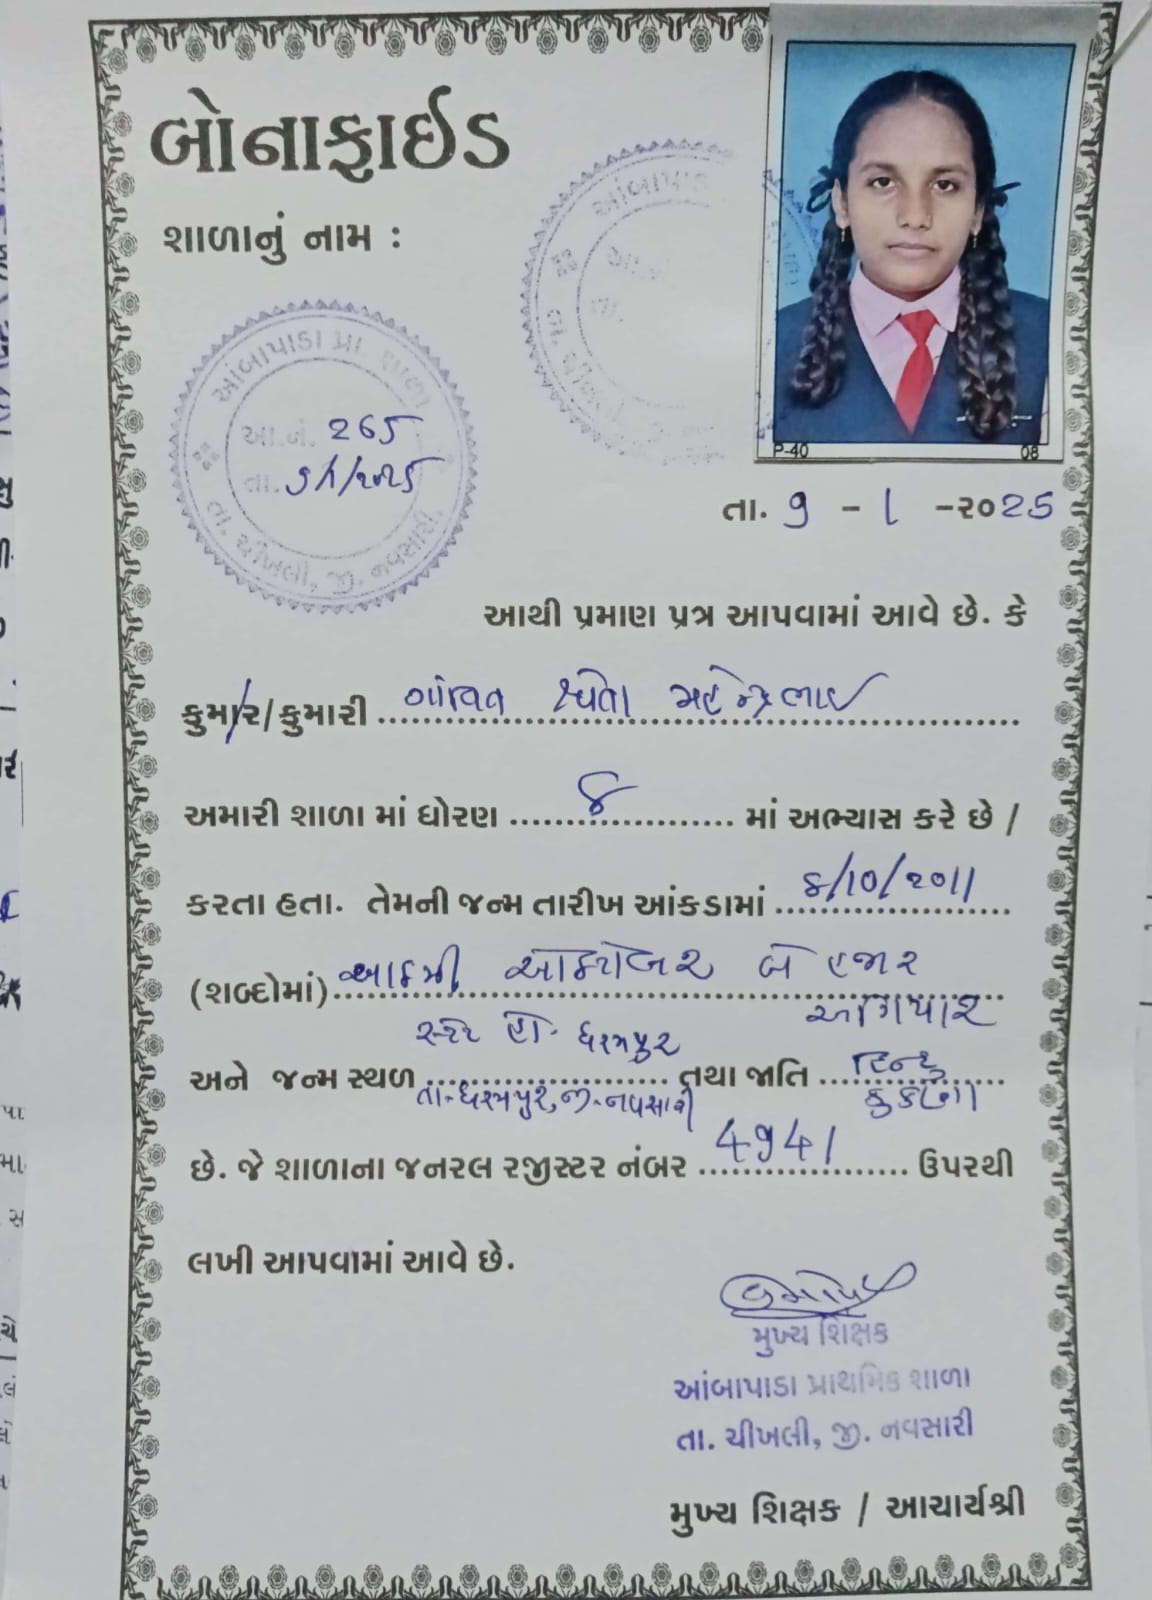 બોનાફાઈડ
શાળાનું નામ :
આંબાપાડા પ્રા. શાળા
આ.નં. 265
તા. 9/1/2025
તા. ચીખલી, જી. નવસારી.
આંબાપાડા
તા. ચીખલી
P-40 08
તા. 9 - 1 -૨૦25
આથી પ્રમાણ પત્ર આપવામાં આવે છે. કે
કુમાર/કુમારી ગાંવિત શ્વેતા મહેન્દ્રભાઈ
અમારી શાળા માં ધોરણ ૪ માં અભ્યાસ કરે છે /
કરતા હતા. તેમની જન્મ તારીખ આંકડામાં ૪/10/2011
(શબ્દોમાં) ઓક્ટોબર બે હજાર
અગિયાર
સ્ટેટ હો. ધરમપુર
અને જન્મ સ્થળ તથા જાતિ હિન્દુ
તા-ધરમપુર, જી-નવસારી કુકણા
છે. જે શાળાના જનરલ રજીસ્ટર નંબર 4941 ઉપરથી
લખી આપવામાં આવે છે.
મુખ્ય શિક્ષક
આંબાપાડા પ્રાથમિક શાળા
તા. ચીખલી, જી. નવસારી
મુખ્ય શિક્ષક / આચાર્યશ્રી